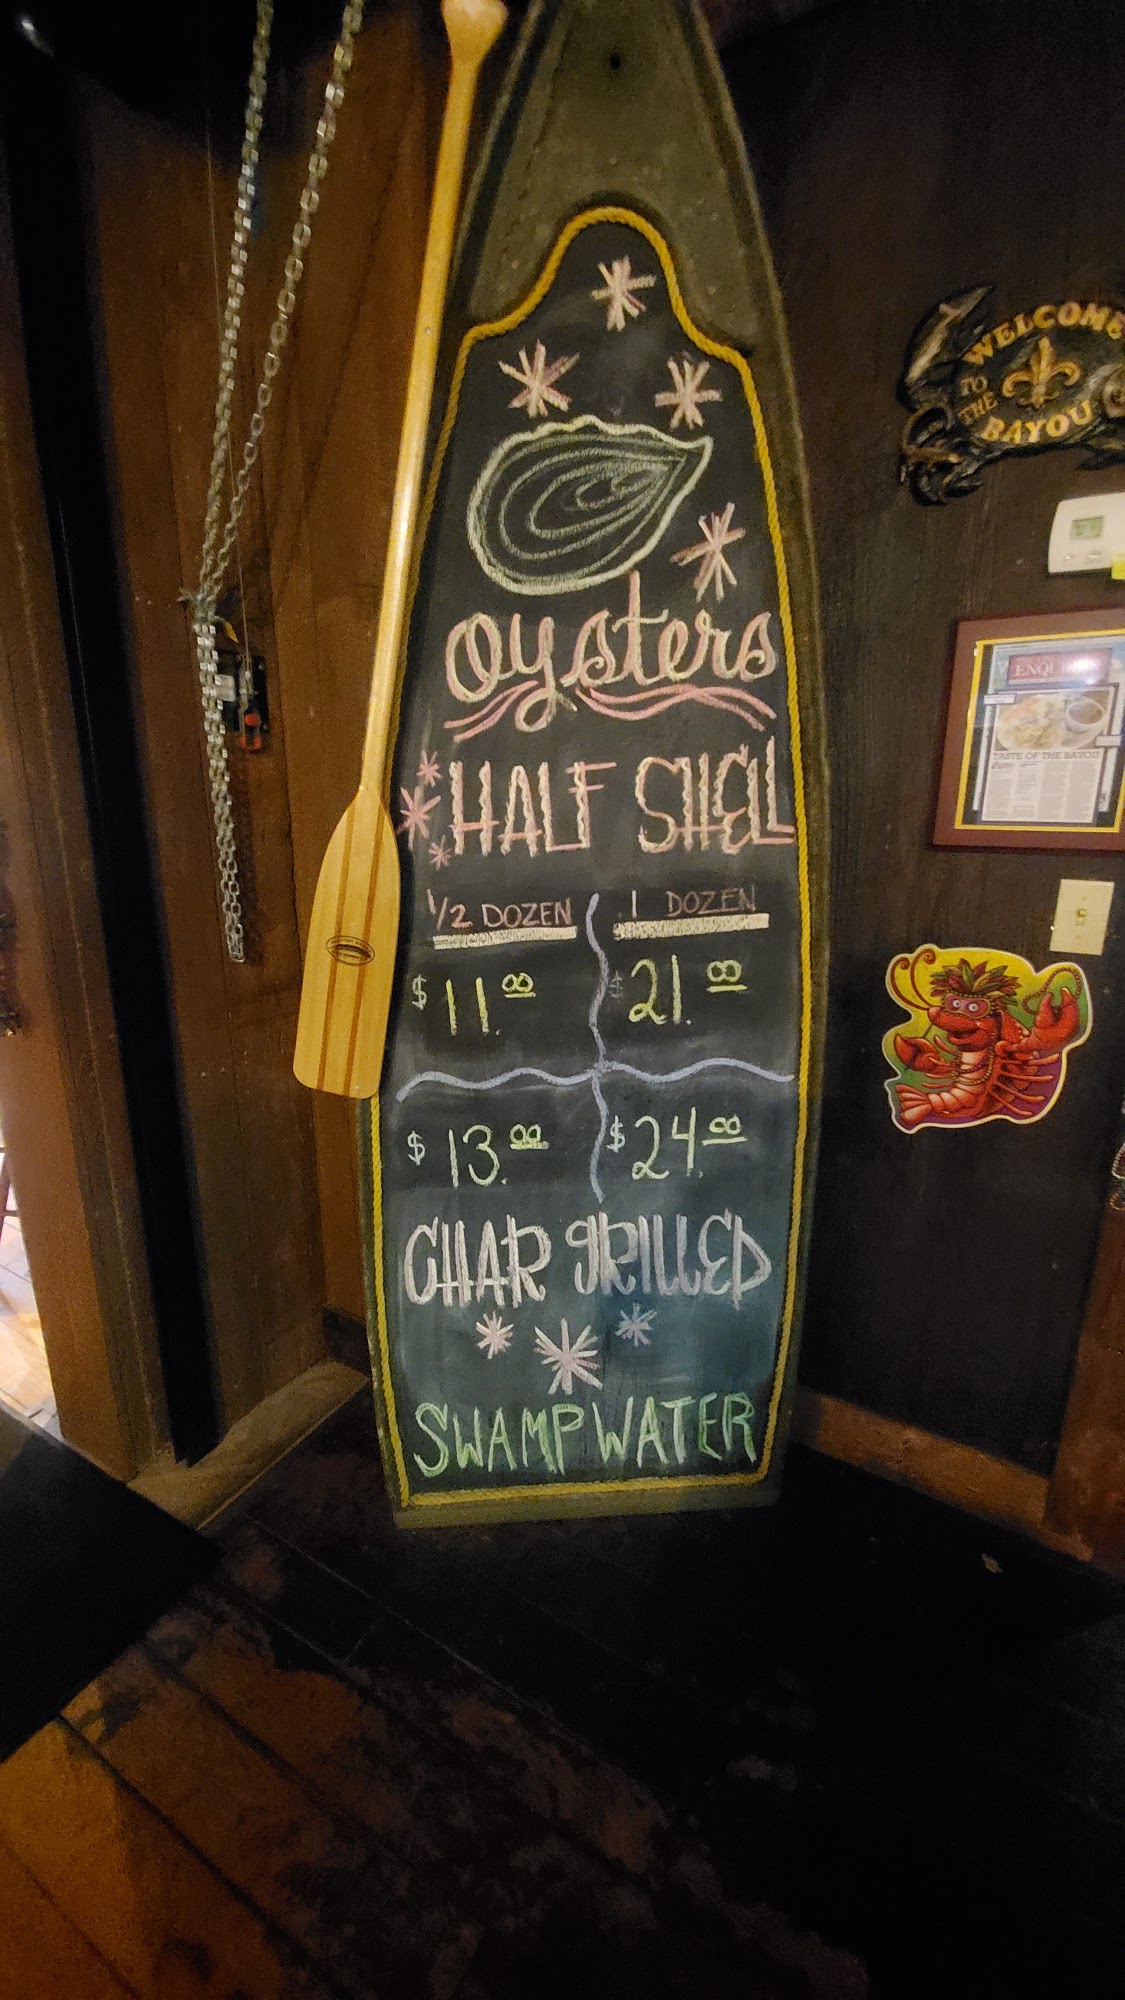 Oysters
HALF SHELL
1/2 DOZEN
1 DOZEN
$11.00
$21.00
$13.00
$24.00
CHAR GRILLED
SWAMPWATER
WELCOME
TO
THE
BAYOU
TASTE OF THE BAYOU